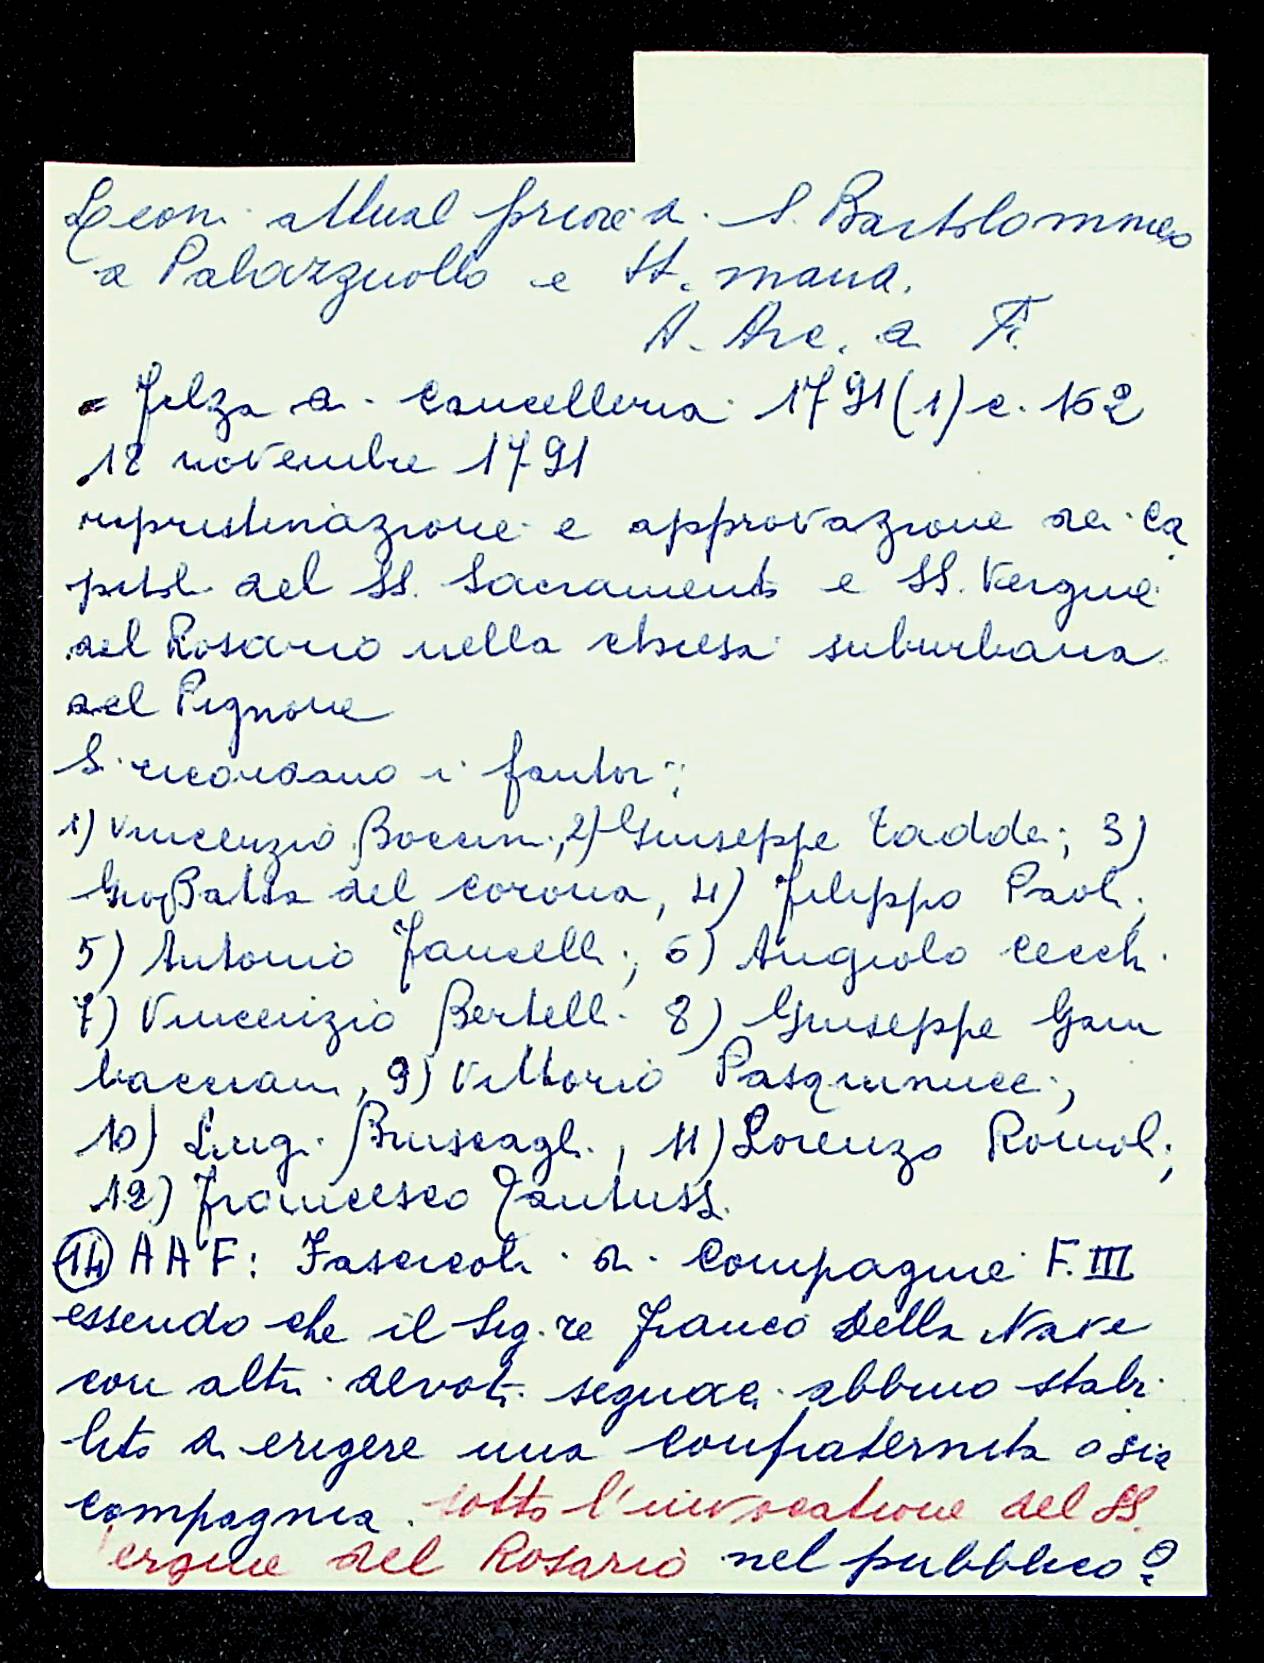 Leoni attual priore di S. Bartolommeo
a Palazzuollo e St. maria.
A. Arc. di Fi.
= Filza di Cancelleria 1791(1) c. 162
18 novembre 1791
ripristinazione e approvazione dei ca
pitoli del SS. Sacramento e SS. Vergine
del Rosario nella chiesa suburbana
del Pignone
Si ricordano i fautori:
1) Vincenzio Boccini, 2) Giuseppe Taddei; 3)
GioBatta del Corona, 4) Filippo Paoli,
5) Antonio Fancelli; 6) Angiolo Cecchi
7) Vincenzio Bertelli 8) Giuseppe Gam
bacciani, 9) Vittorio Pasquinucci,
10) Luigi Bruscagli, 11) Lorenzo Romoli,
12) Francesco Fantussi.
14) AAF: Fascicoli di Compagnie F. III
essendo che il Sig.re Franco Della Nave
con altri devoti seguaci abbino stabi
lito di erigere una confraternita o sia
compagnia sotto l'invocatione del SS.
Vergine del Rosario nel pubblico O